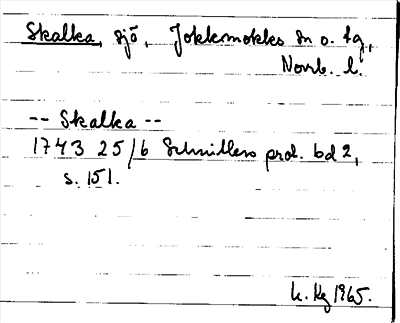 Skalka, sjö, Jokkmokks sn o. tg,
Norrb. l.
-- Skalka --
1743 25/6 Schnitlers prot. bd 2,
s. 151.
h. Hg 1965.